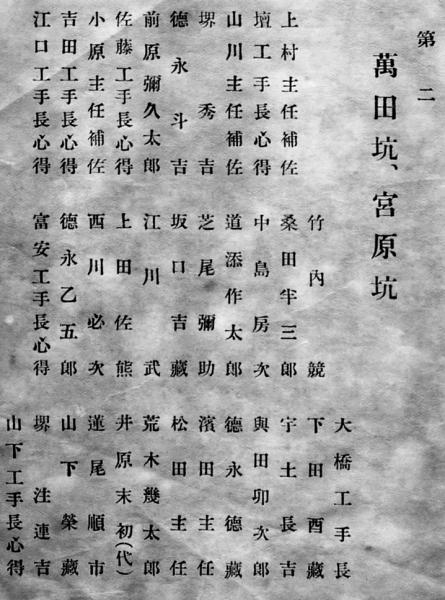 第二
萬田坑、宮原坑
上村主任補佐
壇工手長心得
山川主任補佐
堺秀吉
德永斗吉
前原彌久太郎
佐藤工手長心得
小原主任補佐
吉田工手長心得
江口工手長心得
竹內競
桑田半三郎
中島房次
道添作太郎
芝尾彌助
坂口吉藏
江川武
上田佐熊
西川必次
德永乙五郎
富安工手長心得
大橋工手長
下田酉藏
宇土長吉
與田卯次郎
德永德藏
濱田主任
松田主任
荒木幾太郎
井原末初(代)
蓮尾順市
山下榮藏
堺注連吉
山下工手長心得